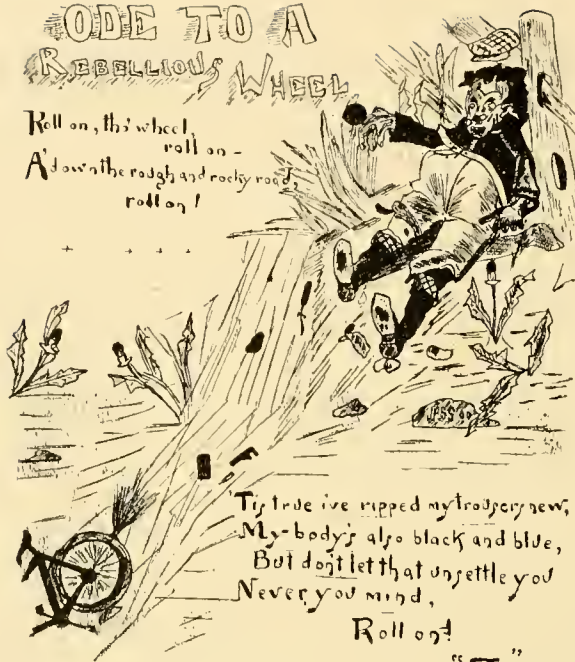 ODE TO A
REBELLIOUS WHEEL
Roll on, tho' wheel,
roll on –
A'down the rough and rocky road,
roll on!
'Tis true ive ripped my trousers new,
My body's also black and blue,
But don't let that unsettle you
Never you mind,
Roll on!